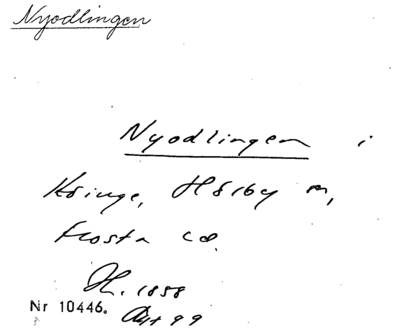 Nyodlingen
Nyodlingen i
Köinge, Hörby sn,
Frosta hd.
1858
Nr 10446. Akt 99